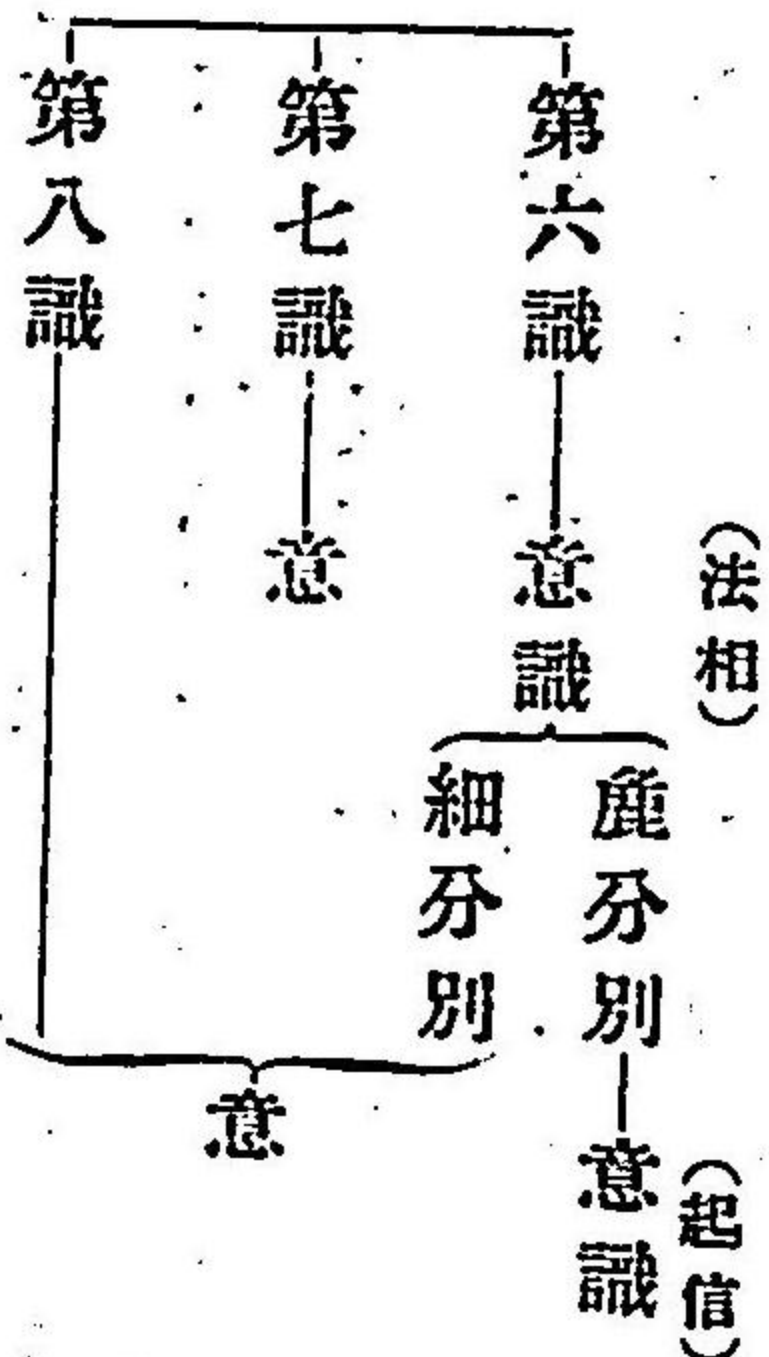 (法相)
(起信)
第六識
意識
麁分別
意識
細分別
第七識
意
第八識
意